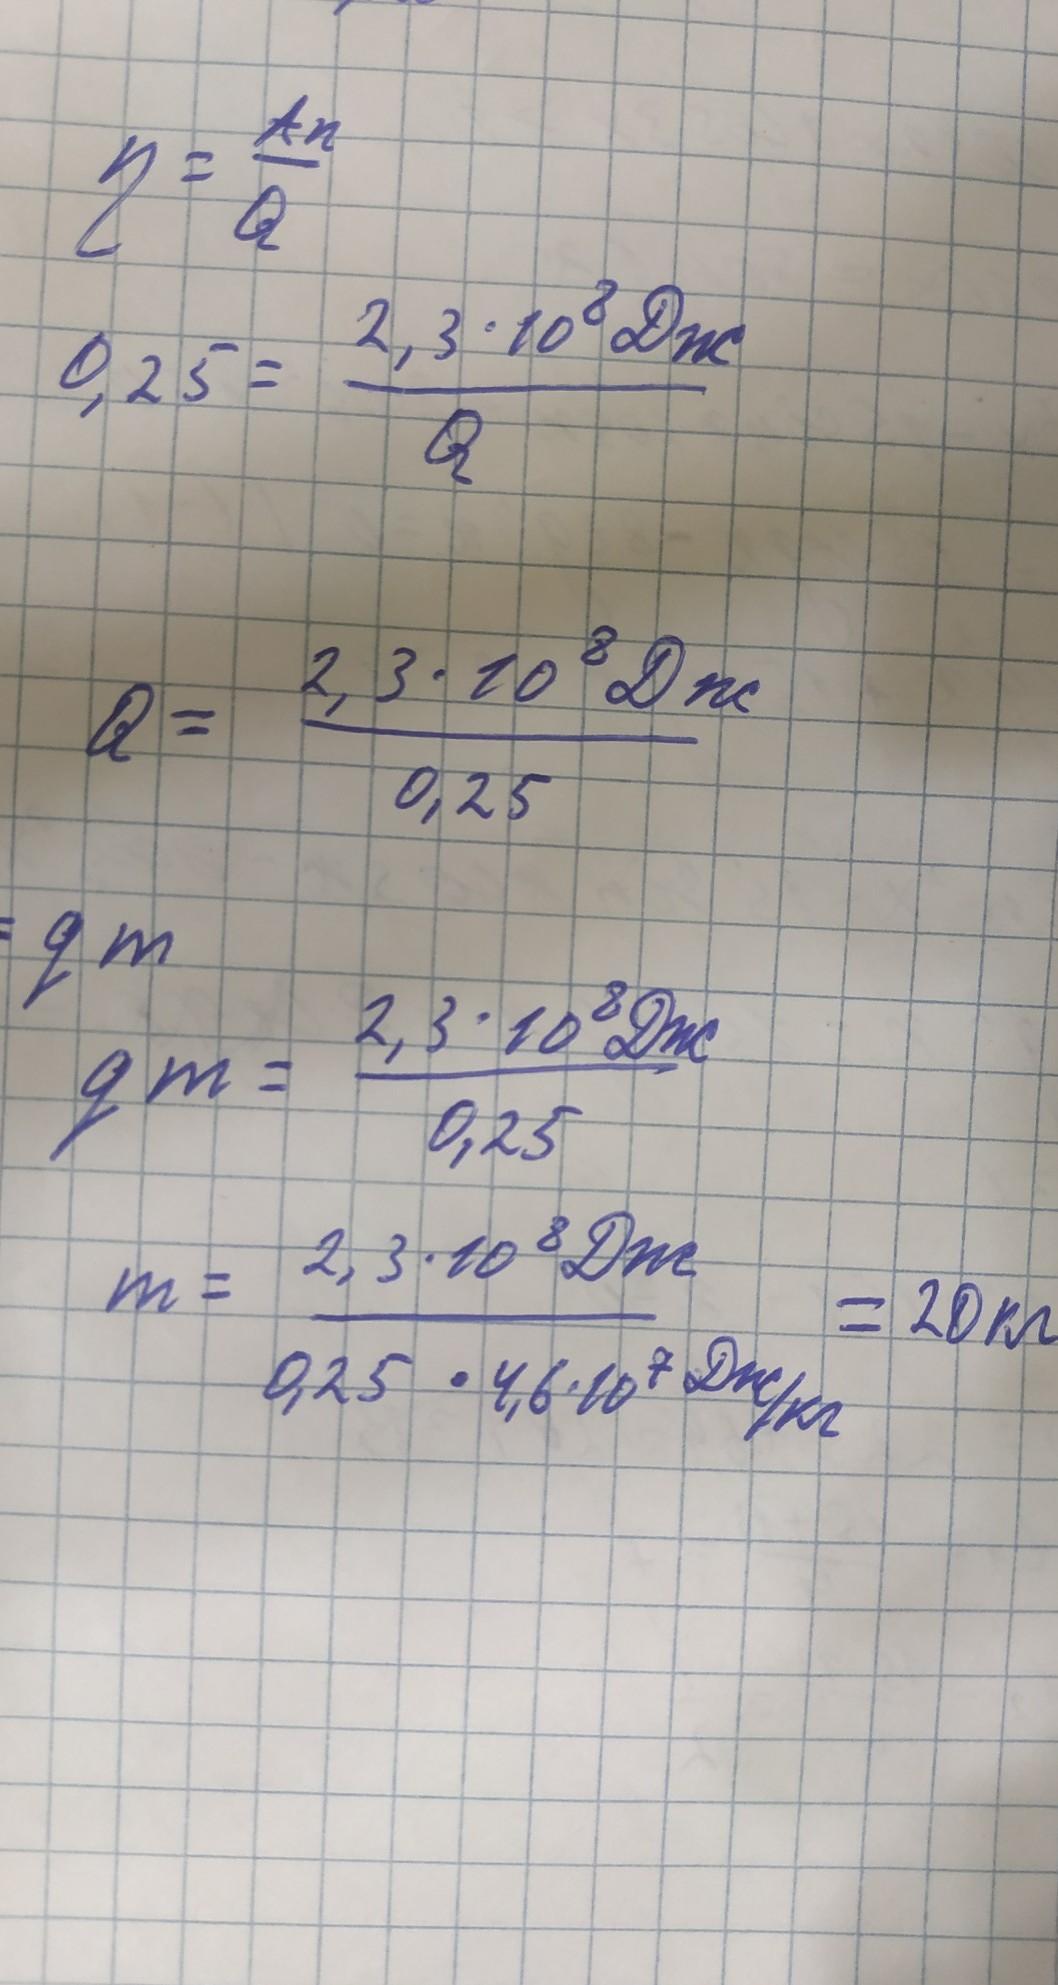 η = Aп/Q
0,25 = 2,3·10⁸ Дж/Q
Q = 2,3·10⁸ Дж/0,25
= qm
qm = 2,3·10⁸ Дж/0,25
m = 2,3·10⁸ Дж/0,25 · 4,6·10⁷ Дж/кг = 20 кг